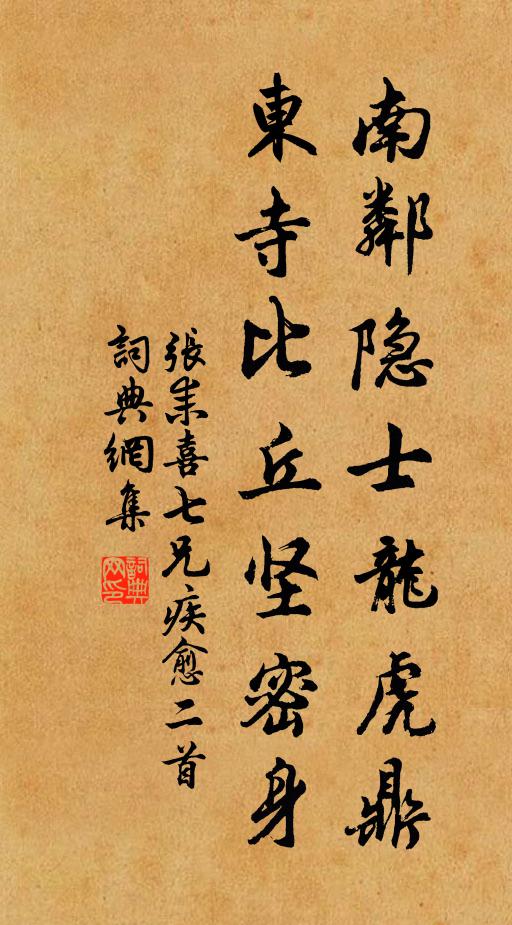 南鄰隐士龍虎鼎
東寺比丘坚密身
張耒喜七兄疾愈二首
詞典網集
詞典网印